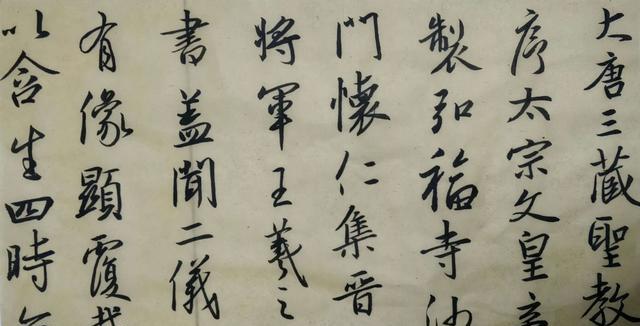 大唐三藏聖教
序太宗文皇帝
製弘福寺沙
門懷仁集晉
將軍王羲之
書蓋聞二儀
有像顯覆載
以含生四時無